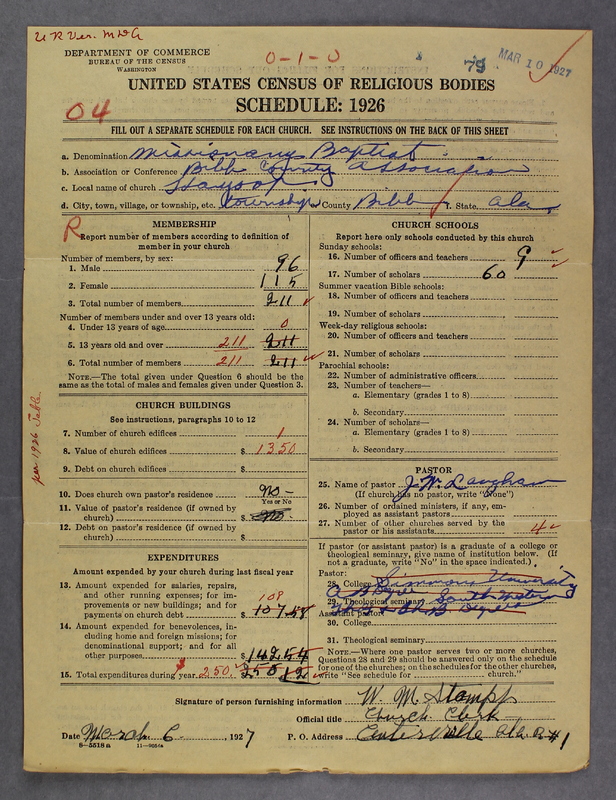 U R Ver. M D G
DEPARTMENT OF COMMERCE
BUREAU OF THE CENSUS
WASHINGTON
0-1-0
79
MAR 10 1927
UNITED STATES CENSUS OF RELIGIOUS BODIES
SCHEDULE: 1926
04
FILL OUT A SEPARATE SCHEDULE FOR EACH CHURCH. SEE INSTRUCTIONS ON THE BACK OF THIS SHEET
a. Denomination Missionary Baptist
b. Association or Conference Bibb County Association
c. Local name of church Haysop
d. City, town, village, or township, etc. township County Bibb f. State Ala
R
MEMBERSHIP
Report number of members according to definition of
member in your church
Number of members, by sex:
1. Male 96
2. Female 115
3. Total number of members 211
Number of members under and over 13 years old:
4. Under 13 years of age 0
5. 13 years old and over 211 211
6. Total number of members 211 211
NOTE.—The total given under Question 6 should be the
same as the total of males and females given under Question 3.
CHURCH BUILDINGS
See instructions, paragraphs 10 to 12
7. Number of church edifices 1
8. Value of church edifices $ 1350
9. Debt on church edifices $
per 1926 Table
10. Does church own pastor's residence No -
Yes or No
11. Value of pastor's residence (if owned by
church) $ No
12. Debt on pastor's residence (if owned by
church) $
EXPENDITURES
Amount expended by your church during last fiscal year
13. Amount expended for salaries, repairs,
and other running expenses; for im-
provements or new buildings; and for
payments on church debt $ 108 107.58
14. Amount expended for benevolences, in-
cluding home and foreign missions; for
denominational support; and for all
other purposes $ 142 54
15. Total expenditures during year $ 250. 250 12
CHURCH SCHOOLS
Report here only schools conducted by this church
Sunday schools:
16. Number of officers and teachers 9
17. Number of scholars 60
Summer vacation Bible schools:
18. Number of officers and teachers
19. Number of scholars
Week-day religious schools:
20. Number of officers and teachers
21. Number of scholars
Parochial schools:
22. Number of administrative officers
23. Number of teachers—
a. Elementary (grades 1 to 8)
b. Secondary
24. Number of scholars—
a. Elementary (grades 1 to 8)
b. Secondary
PASTOR
25. Name of pastor J. W.
(If church has no pastor, write "None")
26. Number of ordained ministers, if any, em-
ployed as assistant pastors
27. Number of other churches served by the
pastor or his assistants 4
If pastor (or assistant pastor) is a graduate of a college or
theological seminary, give name of institution below. (If
not a graduate, write "No" in the space indicated.)
Pastor:
28. College Simmons University
29. Theological seminary Southwestern
Assistant pastor:
30. College
31. Theological seminary
NOTE.—Where one pastor serves two or more churches,
Questions 28 and 29 should be answered only on the schedule
for one of the churches; on the schedules for the other churches,
write "See schedule for church."
Signature of person furnishing information W. M. Stampp
Official title Church Clerk
Date March 6, 1927 P. O. Address Centerville Ala R #1
8-5518a 11-9054a